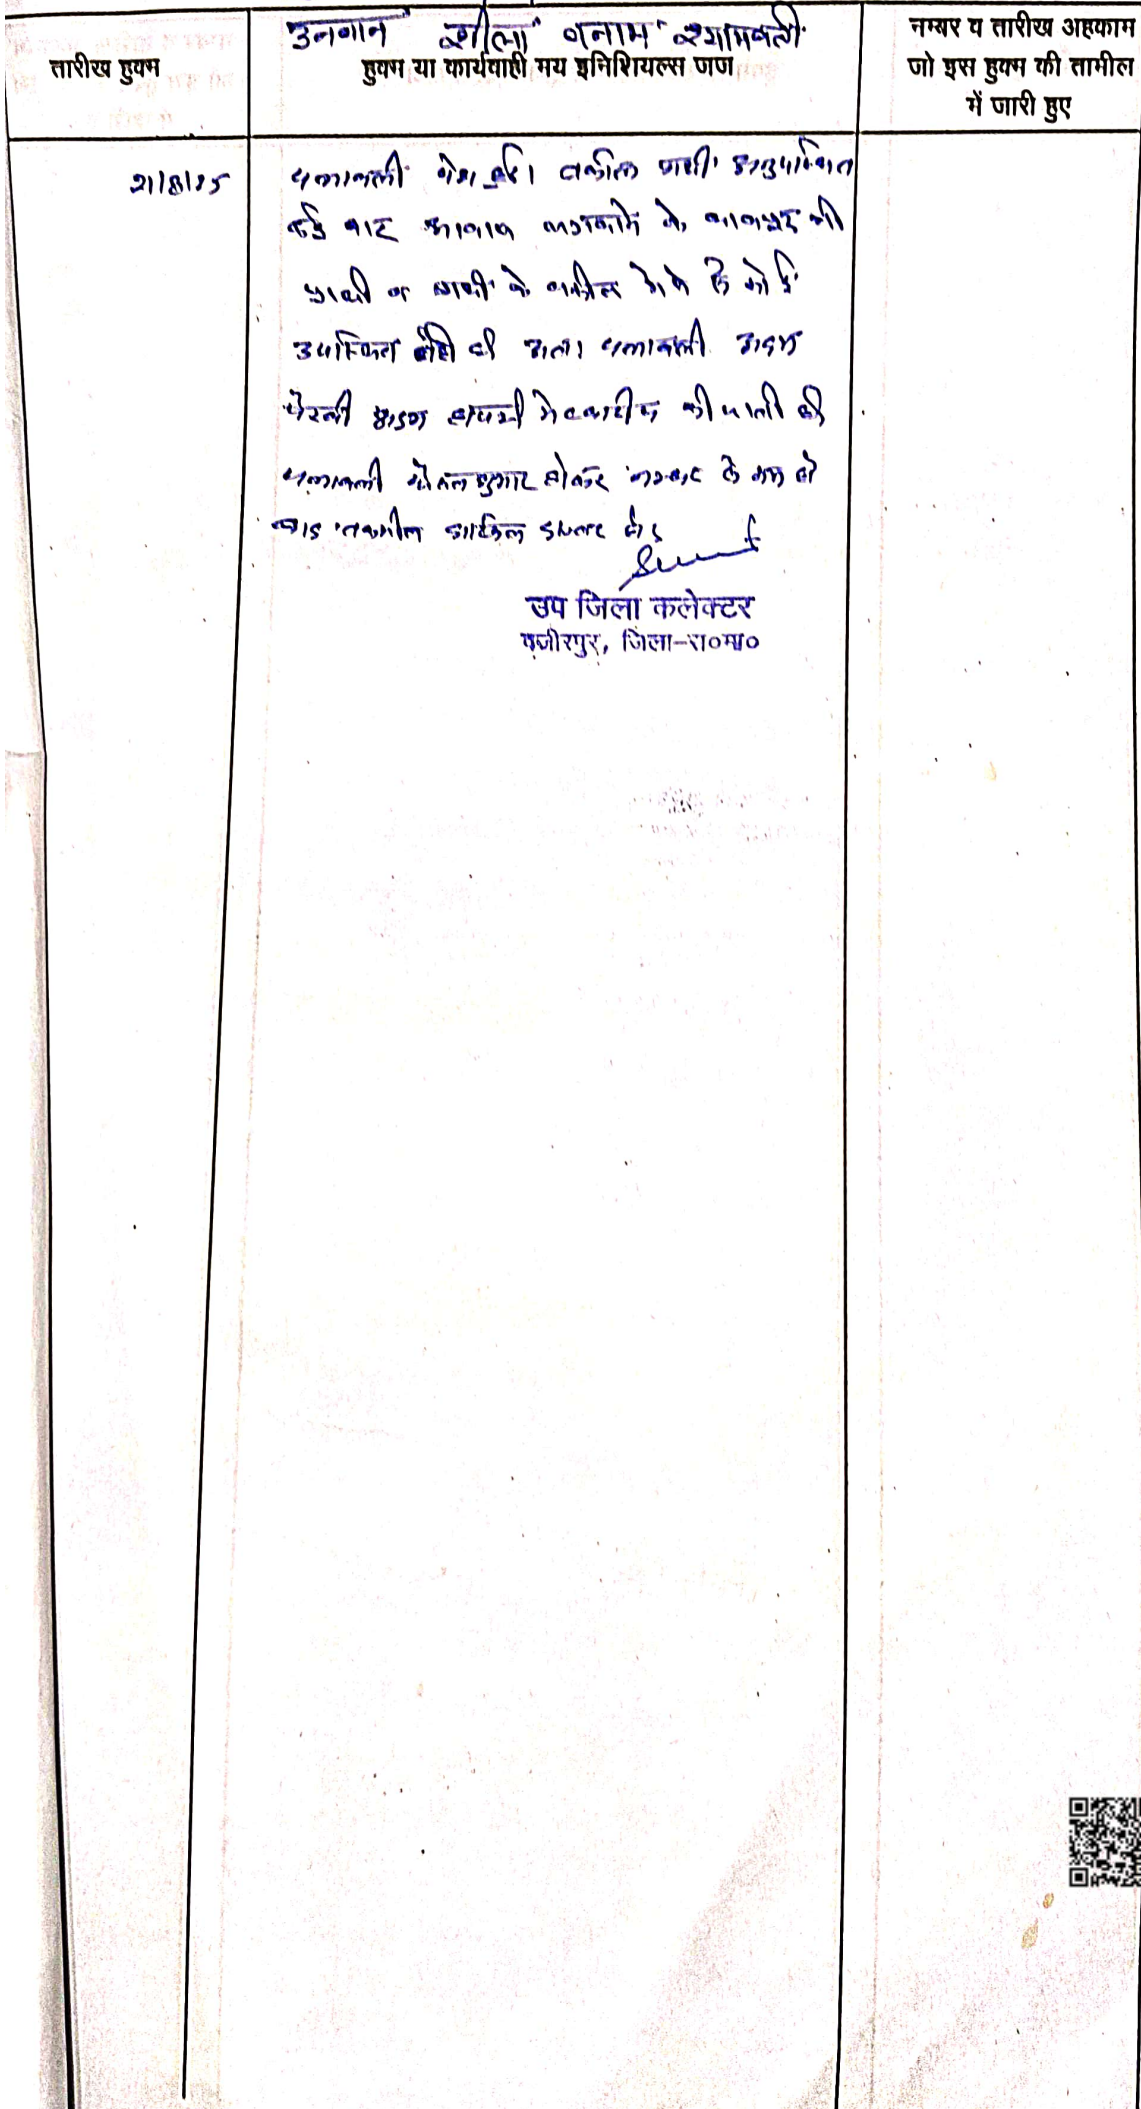 उनवान शीला बनाम श्यामवती
तारीख हुक्म
हुक्म या कार्यवाही मय इनिशियल्स जज
नम्बर व तारीख अहकाम
जो इस हुक्म की तामील
में जारी हुए
21/8/25
पत्रावली पेश हुई। वकील प्रार्थी अनुपस्थित
कई बार आवाज लगवाने के बावजूद भी
प्रार्थी व प्रार्थी के वकील
उपस्थित नहीं पत्रावली अदम
पैरवी में खारीज की जाती है
पत्रावली होकर नम्बर से कम हो
बाद तकमील दाखिल दफ्तर हो।
उप जिला कलेक्टर
वजीरपुर, जिला-स०मा०